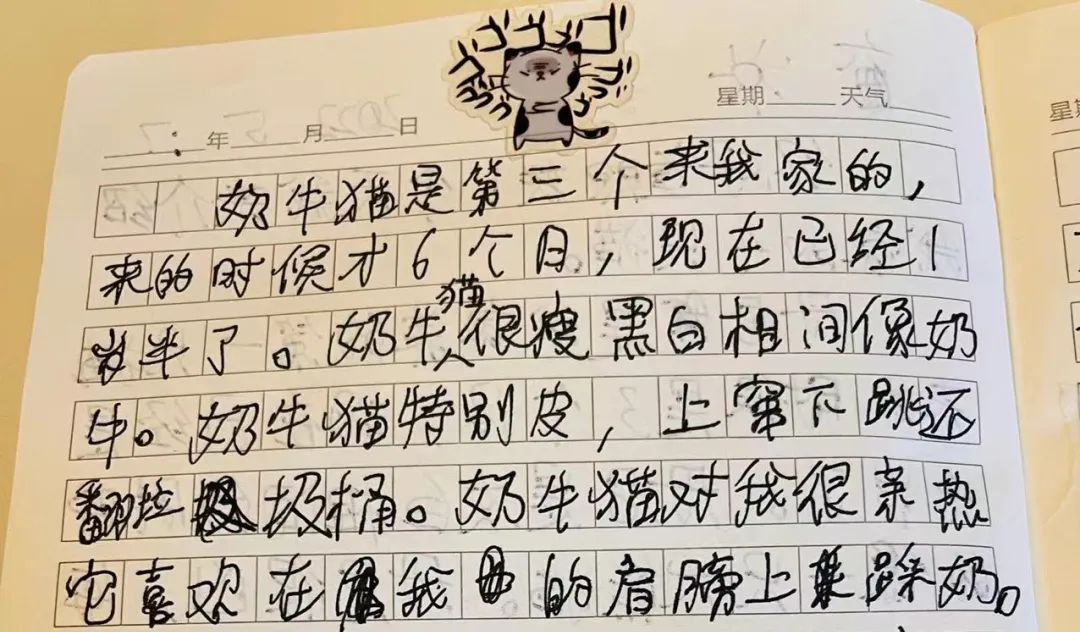 ゴゴゴゴゴゴ
星期 天气
年 月 日
奶牛猫是第三个来我家的,
来的时候才6个月,现在已经1
岁半了。奶牛猫很瘦黑白相间像奶
牛。奶牛猫特别皮,上窜下跳还
翻垃圾桶。奶牛猫对我很亲热
它喜欢在我的肩膀上踩奶。